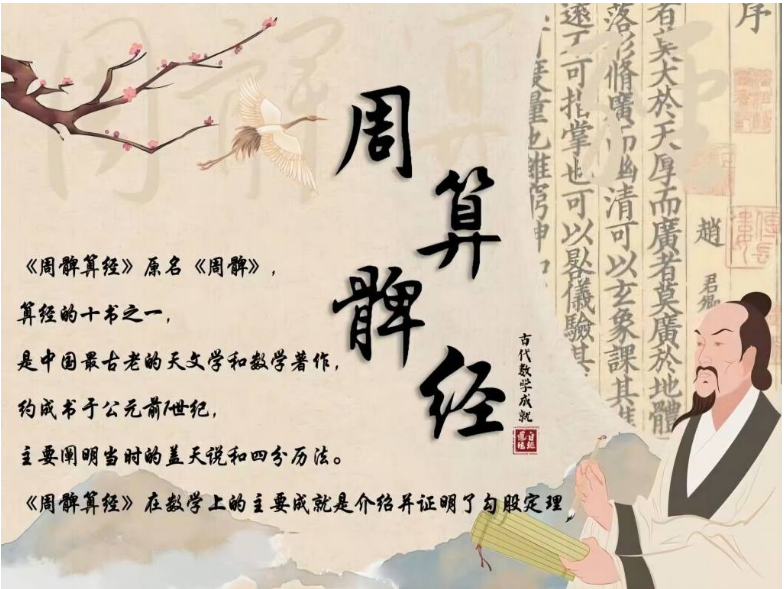 周髀算经
古代数学成就
《周髀算经》原名《周髀》，
算经的十书之一，
是中国最古老的天文学和数学著作，
约成书于公元前1世纪，
主要阐明当时的盖天说和四分历法。
《周髀算经》在数学上的主要成就是介绍并证明了勾股定理
序
趙
君卿
者莫大於天厚而廣者莫廣於地體
落形脩廣而幽清可以玄象課其進
邃不可指掌也可以晷儀驗其
度量也雖窮神
周髀算經